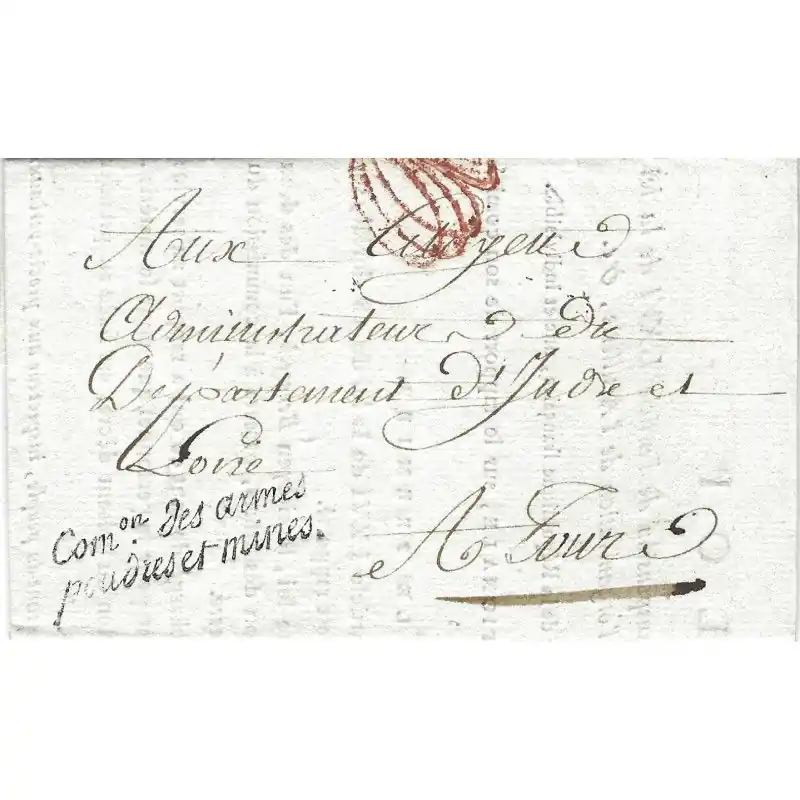 Aux Citoyens
Administrateurs du
Département d'Indre et
Loire
Com.on des armes
poudres et mines.
A Tours